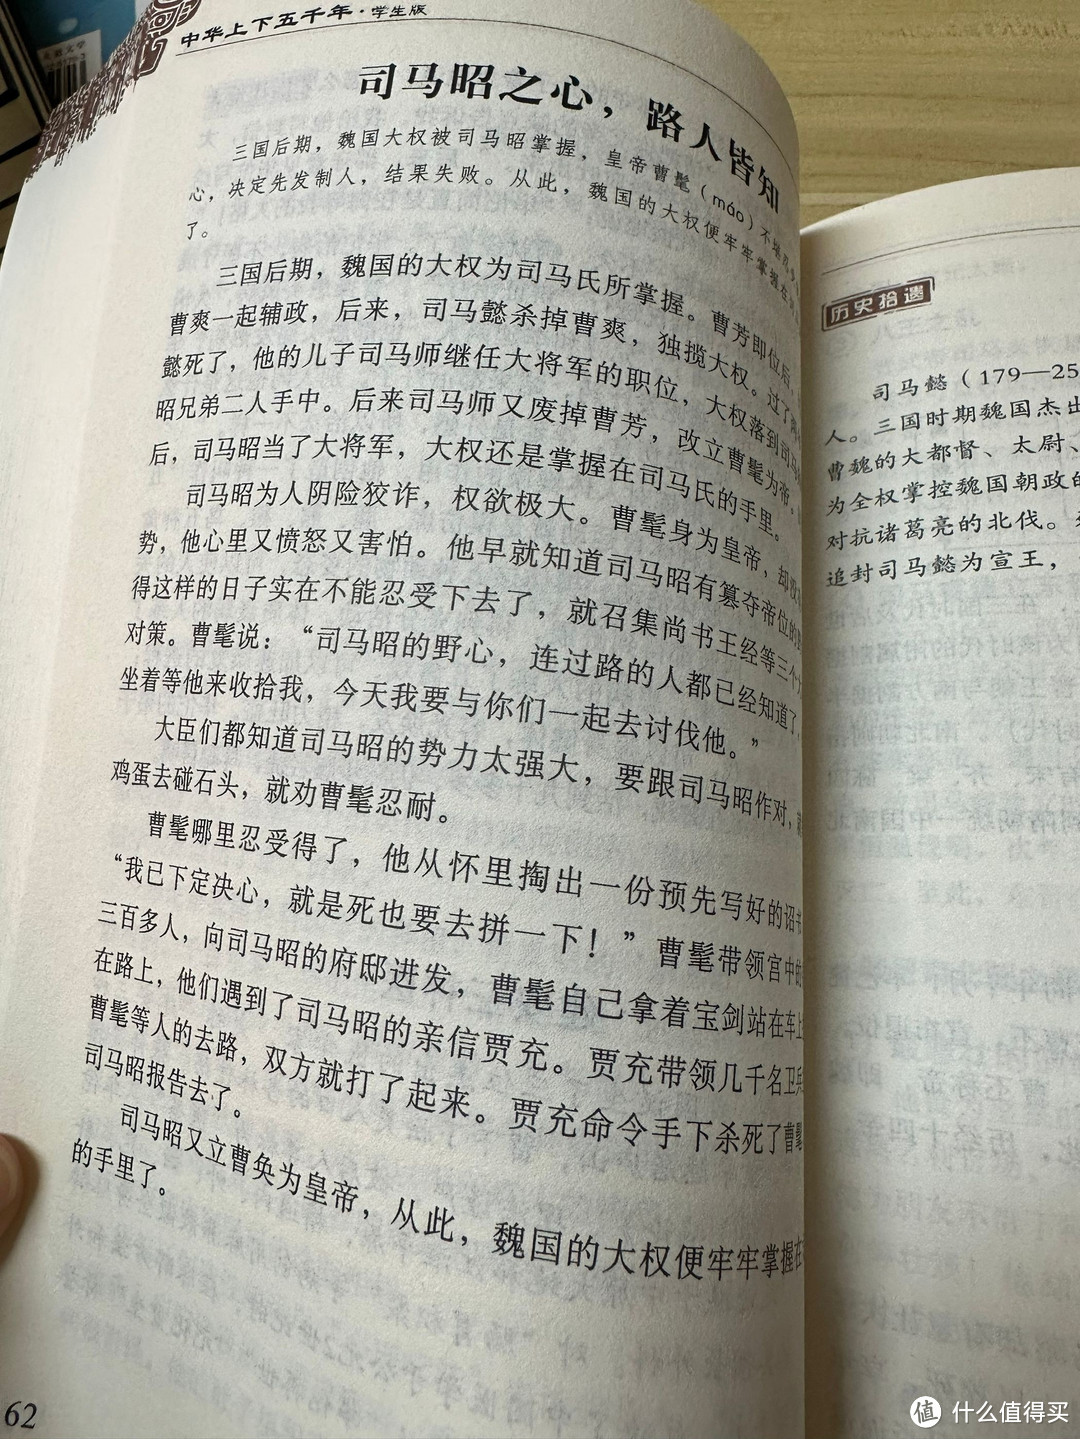 中华上下五千年·学生版
司马昭之心，路人皆知
三国后期，魏国大权被司马昭掌握，皇帝曹髦（máo）不堪忍
心，决定先发制人，结果失败。从此，魏国的大权便牢牢掌握在
了。
三国后期，魏国的大权为司马氏所掌握。曹芳即位后，
曹爽一起辅政，后来，司马懿杀掉曹爽，独揽大权。过了
懿死了，他的儿子司马师继任大将军的职位，大权落到司马
昭兄弟二人手中。后来司马师又废掉曹芳，改立曹髦为帝。
后，司马昭当了大将军，大权还是掌握在司马氏的手里。
司马昭为人阴险狡诈，权欲极大。曹髦身为皇帝，却
势，他心里又愤怒又害怕。他早就知道司马昭有篡夺帝位的
得这样的日子实在不能忍受下去了，就召集尚书王经等三个
对策。曹髦说：“司马昭的野心，连过路的人都已经知道了，
坐着等他来收拾我，今天我要与你们一起去讨伐他。”
大臣们都知道司马昭的势力太强大，要跟司马昭作对，
鸡蛋去碰石头，就劝曹髦忍耐。
曹髦哪里忍受得了，他从怀里掏出一份预先写好的诏书
“我已下定决心，就是死也要去拼一下！”曹髦带领宫中的
三百多人，向司马昭的府邸进发，曹髦自己拿着宝剑站在车上
在路上，他们遇到了司马昭的亲信贾充。贾充带领几千名卫兵
曹髦等人的去路，双方就打了起来。贾充命令手下杀死了曹髦
司马昭报告去了。
司马昭又立曹奂为皇帝，从此，魏国的大权便牢牢掌握在
的手里了。
62
历史拾遗
司马懿（179—25
人。三国时期魏国杰出
曹魏的大都督、太尉、
为全权掌控魏国朝政的
对抗诸葛亮的北伐。
追封司马懿为宣王，
值 什么值得买